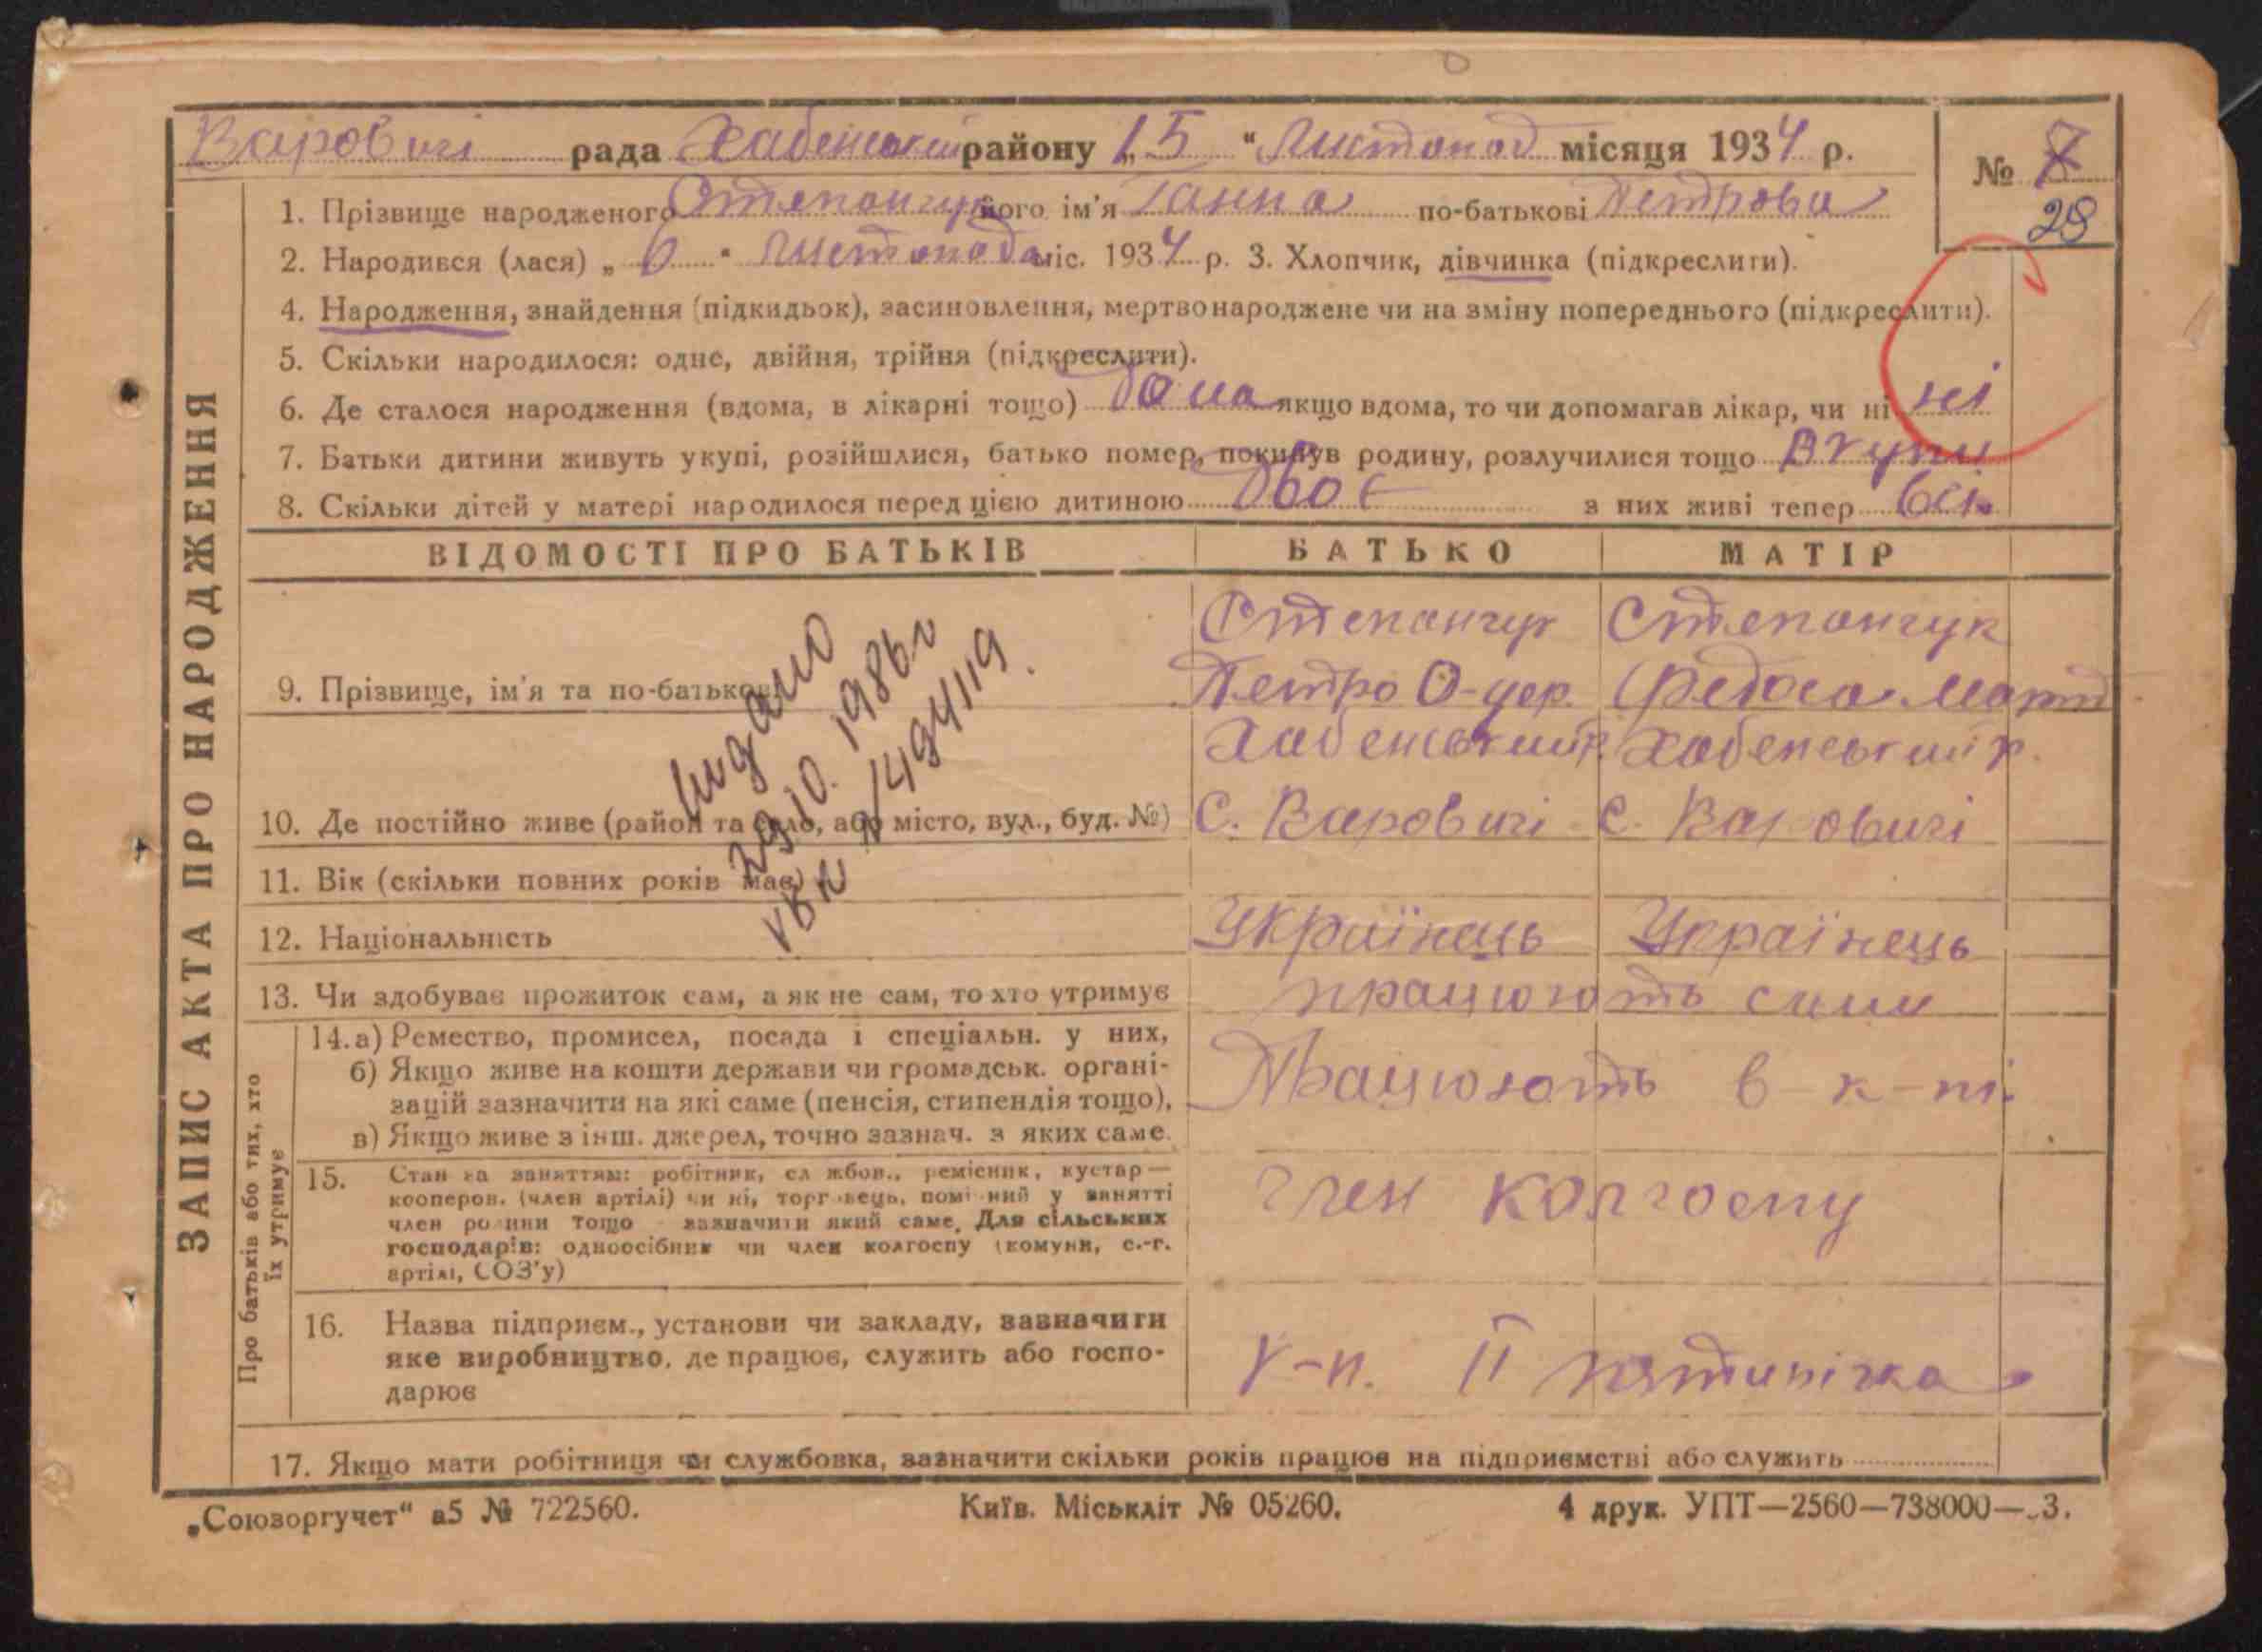 Варовичі рада Хабенський району „15“ Листопад місяця 1934 р.
№ 7
28
1. Прізвище народженого Степанчук його ім'я Ганна по-батькові Петрова
2. Народився (лася) „6“ листопада міс. 1934 р. 3. Хлопчик, дівчинка (підкреслити).
4. Народження, знайдення (підкидьок), засиновлення, мертвонароджене чи на зміну попереднього (підкреслити).
5. Скільки народилося: одне, двійня, трійня (підкреслити).
6. Де сталося народження (вдома, в лікарні тощо) дома якщо вдома, то чи допомагав лікар, чи ні ні
7. Батьки дитини живуть укупі, розійшлися, батько помер, покинув родину, розлучилися тощо Вкупи
8. Скільки дітей у матері народилося перед цією дитиною двоє з них живі тепер всі
ЗАПИС АКТА ПРО НАРОДЖЕННЯ
ВІДОМОСТІ ПРО БАТЬКІВ БАТЬКО МАТІР
Степанчук Степанчук
9. Прізвище, ім'я та по-батькові Петро Федоса Март
Хабенський р. Хабенський р.
10. Де постійно живе (район та село, або місто, вул., буд. №) С. Варовичі с. Варовичі
видано
29.10.1986 г
№ 1494119.
11. Вік (скільки повних років має)
12. Національність Українець Українець
13. Чи здобуває прожиток сам, а як не сам, то хто утримує працюють сами
Про батьків або тих, хто
їх утримує
14. а) Ремество, промисел, посада і спеціальн. у них,
б) Якщо живе на кошти держави чи громадськ. органі-
зацій зазначити на які саме (пенсія, стипендія тощо),
в) Якщо живе з інш. джерел, точно зазнач. з яких саме.
Працюють в-к-пі.
15. Стан за заняттям: робітник, службов., ремісник, кустар—
кооперов. (член артілі) чи ні, торговець, помічний у занятті
член родини тощо зазначити який саме. Для сільських
господарів: одноосібник чи член колгоспу (комуни, с.-г.
артілі, СОЗ'у)
член колгоспу
16. Назва підприєм., установи чи закладу, зазначити
яке виробництво, де працює, служить або госпо-
дарює
к-п. II пятилічка
17. Якщо мати робітниця чи службовка, зазначити скільки років працює на підприємстві або служить
„Союзоргучет“ а5 № 722560. Київ. Міськліт № 05260. 4 друк. УПТ—2560—738000— 3.